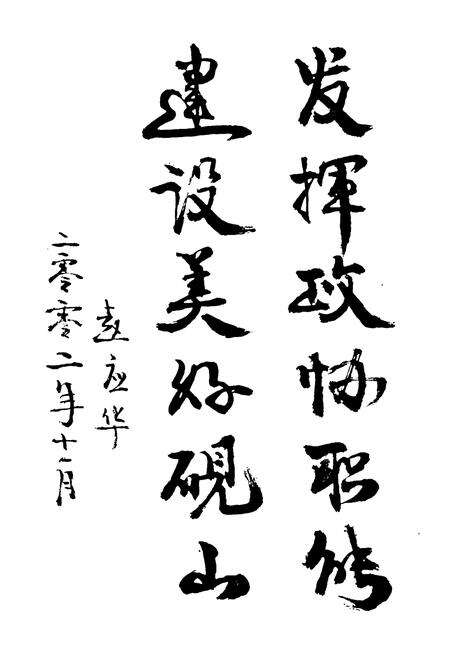 发揮政协职能
建设美好砚山
赵应华
二零零二年十一月